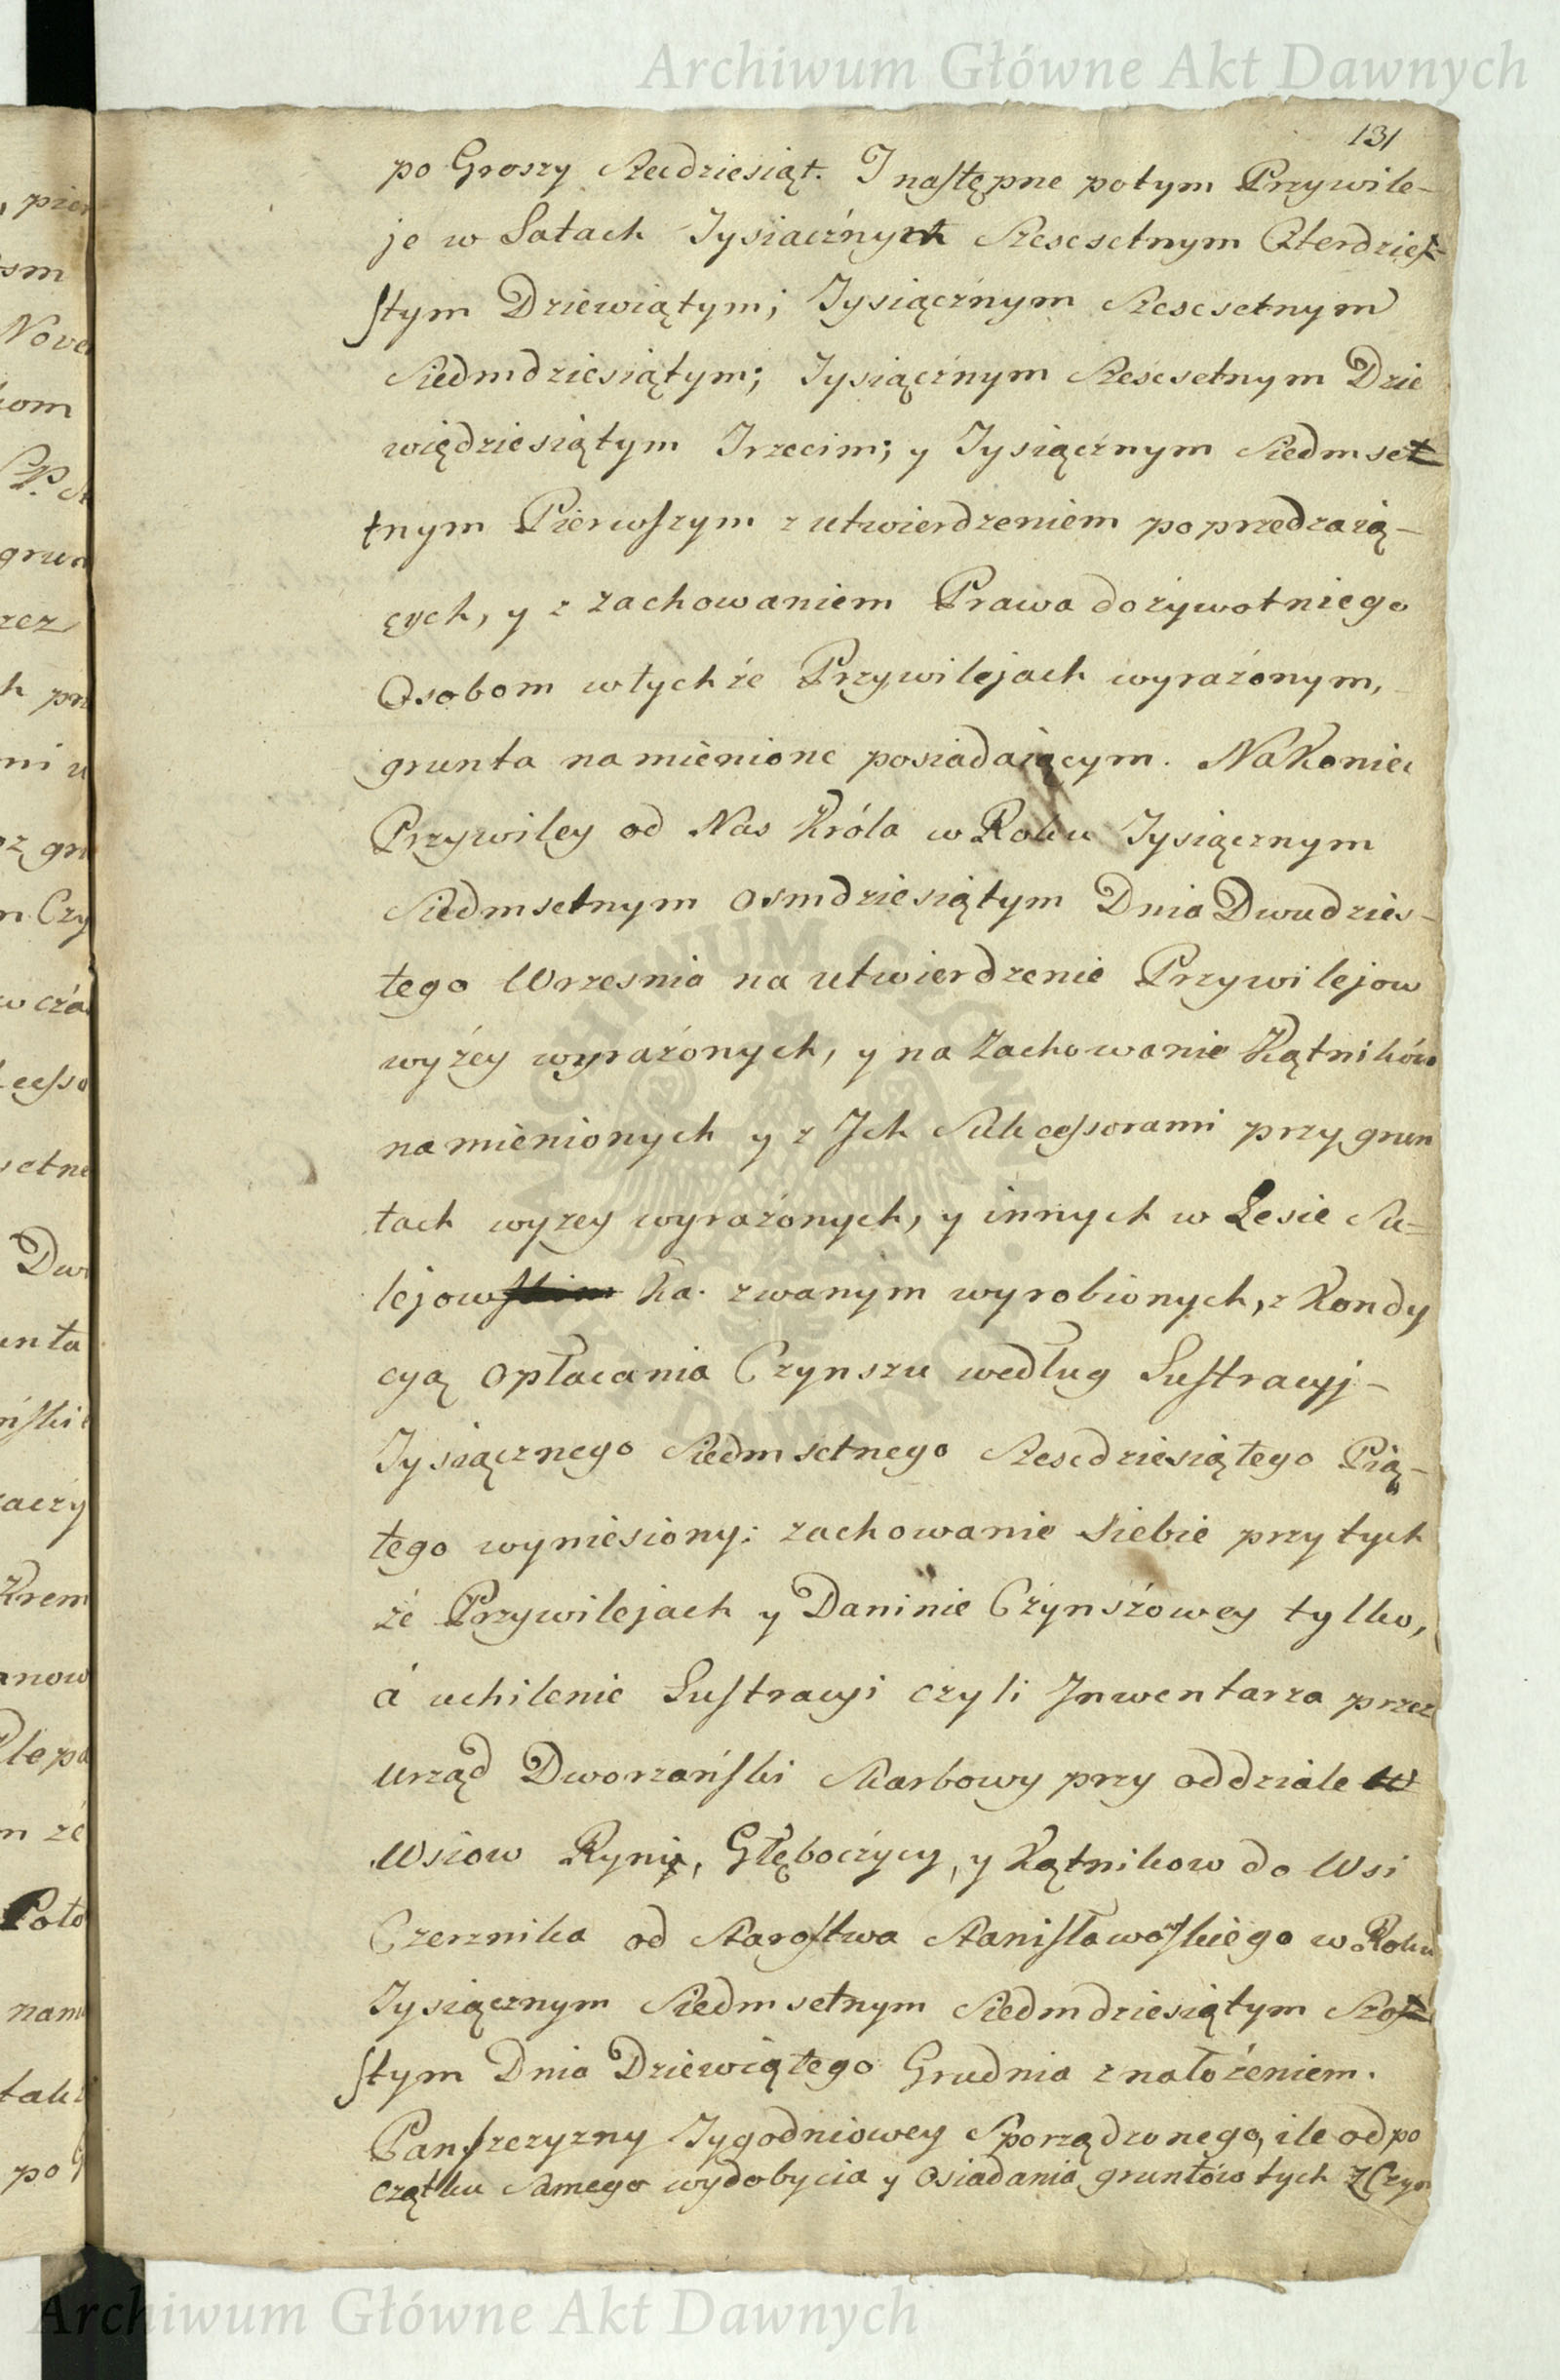 Archiwum Główne Akt Dawnych
131
po Groszy Szedziesiąt. I następne potym Przywile-
je w Latach Tysiacźnych Szescsetnym Czterdzies-
stym Dziewiątym; Tysiącźnym Szescsetnym
Siedmdziesiątym; Tysiącźnym Szescsetnym Dzie
więdziesiątym Trzecim; y Tysiącznym Siedmset
tnym Pierwszym z utwierdzeniem poprzedzaią-
cych, y z zachowaniem Prawa dożywotniego
Osobom w tychże Przywilejach wyrażonym,
grunta namienione posiadaiącym. Na Koniec
Przywiley od Nas Króla w Roku Tysiącznym
Siedmsetnym Osmdziesiątym Dnia Dwudzies-
tego Wrzesnia na utwierdzenie Przywilejow
wyżey wyrażonych, y na Zachowanie Kątników
namienionych y z Ich Sukcessorami przy grun
tach wyzey wyrażonych, y innych w Lesie Su-
lejowskim Ka. zwanym wyrobionych, z Kondy
cyą Opłacania Czynszu według Lustracyj-
Tysiącznego Siedmsetnego Szescdziesiątego Pią-
tego wyniesiony: zachowanie Siebie przy tych
że Przywilejach y Daninie Czynszowey tylko,
á uchilenie Lustracyi czyli Inwentarza przez
Urząd Dworzański Skarbowy przy oddziale w
Wsiow Ryni, Głęboczycy, y Kątnikow do Wsi
Czerznika od Starostwa Stanisławowskiego w Roku
Tysiącznym Siedmsetnym Siedmdziesiątym Szos
stym Dnia Dziewiątego Grudnia z nałożeniem.
Panszczyzny Tygodniowey Sporządzonego, ile od po
czątku Samego wydobycia y osiadania gruntów tych Z Czyn
Archiwum Główne Akt Dawnych